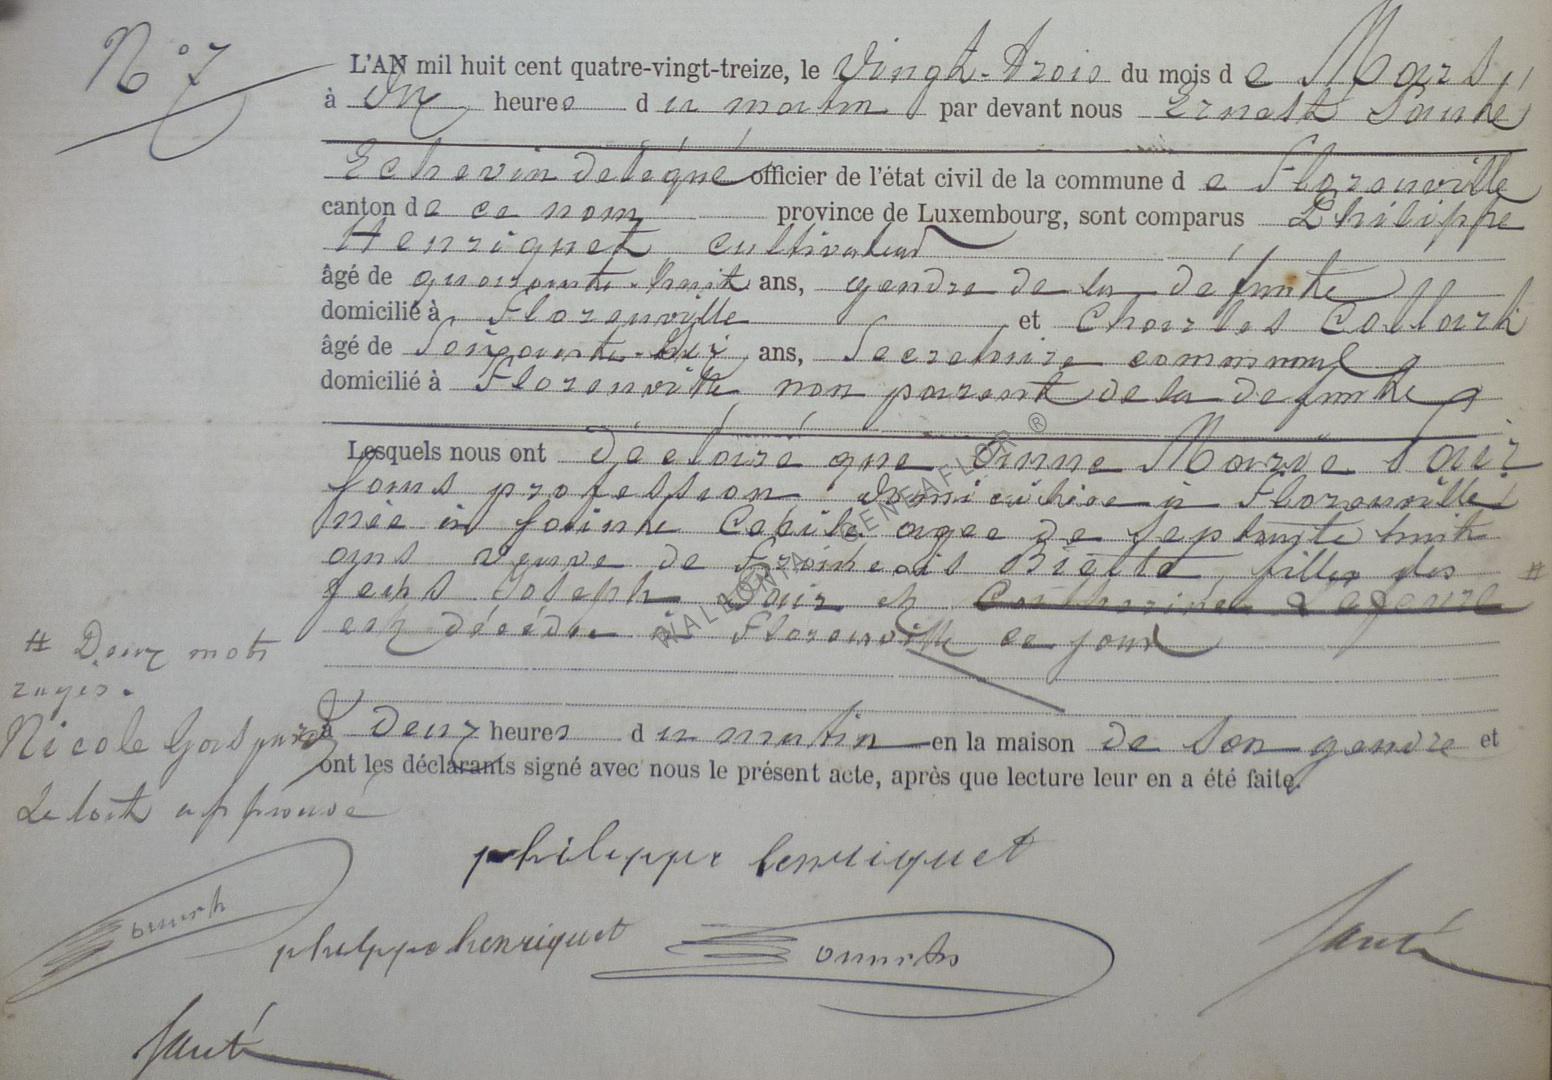 N° 7
L'AN mil huit cent quatre-vingt-treize, le Vingt-trois du mois de Mars
à dix heures du matin par devant nous Ernest Santé
Echevin délégué officier de l'état civil de la commune de Florenville
canton de ce nom province de Luxembourg, sont comparus Philippe
Henriquet cultivateur
âgé de quarante-huit ans, gendre de la défunte
domicilié à Florenville et Charles Collard
âgé de ans, Secrétaire communal
domicilié à Florenville non parent de la défunte
Lesquels nous ont déclaré que Anne Marie
sans profession domiciliée à Florenville
née à Sainte Cécile agée de septante huit
ans veuve de François filles des #
feus Joseph et Catherine
est décédée à Florenville ce jour
à deux heures du matin en la maison de son gendre et
ont les déclarants signé avec nous le présent acte, après que lecture leur en a été faite.
# Deux mots
rayés.
Nicole Gaspard
Le tout approuvé
philippe henriquet
philippe henriquet
Santé
Santé
WALLONIA GENEAFLOR ®